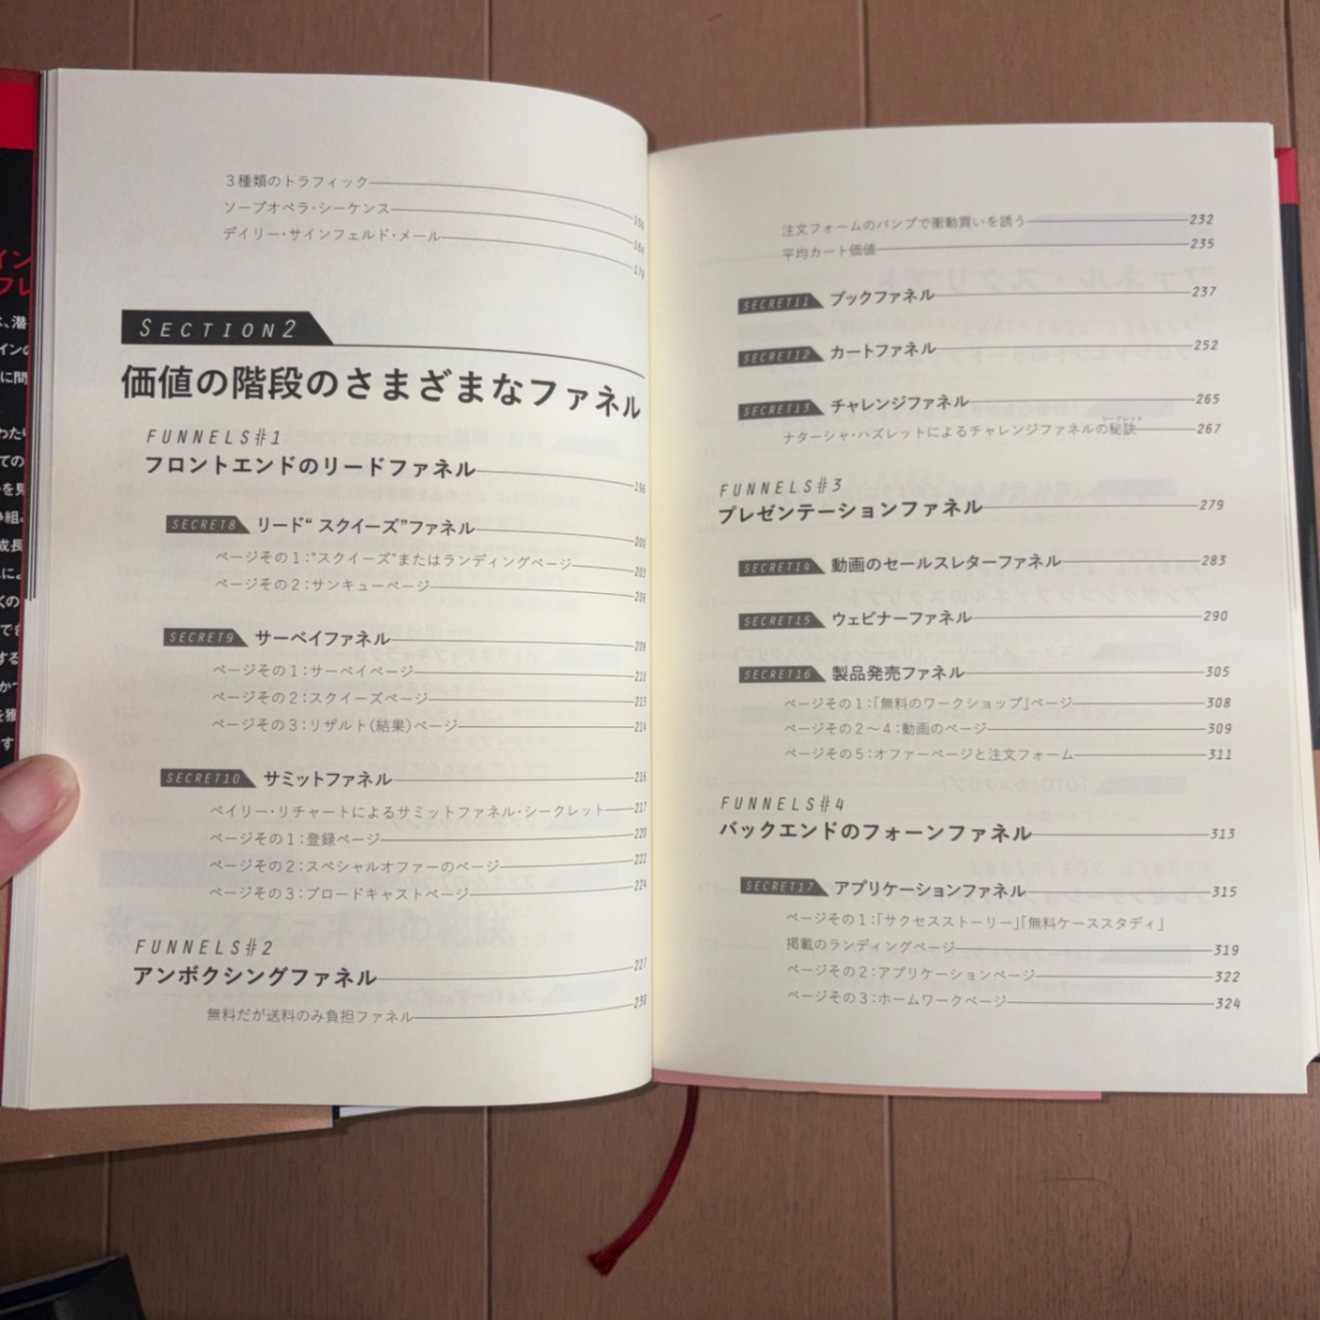 3種類のトラフィック 156
ソープオペラ・シーケンス 164
デイリー・サインフェルド・メール 178
SECTION2
価値の階段のさまざまなファネル
FUNNELS#1
フロントエンドのリードファネル 196
SECRET8 リード“スクイーズ”ファネル 200
ページその1:“スクイーズ”またはランディングページ 203
ページその2:サンキューページ 206
SECRET9 サーベイファネル 208
ページその1:サーベイページ 210
ページその2:スクイーズページ 213
ページその3:リザルト(結果)ページ 214
SECRET10 サミットファネル 216
ベイリー・リチャートによるサミットファネル・シークレット 217
ページその1:登録ページ 220
ページその2:スペシャルオファーのページ 222
ページその3:ブロードキャストページ 224
FUNNELS#2
アンボクシングファネル 227
無料だが送料のみ負担ファネル 230
注文フォームのバンプで衝動買いを誘う 232
平均カート価値 235
SECRET11 ブックファネル 237
SECRET12 カートファネル 252
SECRET13 チャレンジファネル 265
ナターシャ・ハズレットによるチャレンジファネルの秘訣 267
FUNNELS#3
プレゼンテーションファネル 279
SECRET14 動画のセールスレターファネル 283
SECRET15 ウェビナーファネル 290
SECRET16 製品発売ファネル 305
ページその1:「無料のワークショップ」ページ 308
ページその2〜4:動画のページ 309
ページその5:オファーページと注文フォーム 311
FUNNELS#4
バックエンドのフォーンファネル 313
SECRET17 アプリケーションファネル 315
ページその1:「サクセスストーリー」「無料ケーススタディ」
掲載のランディングページ 319
ページその2:アプリケーションページ 322
ページその3:ホームワークページ 324